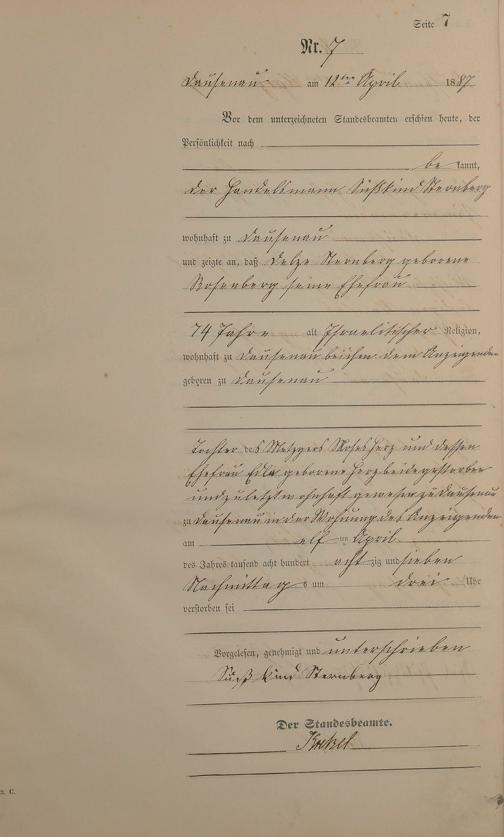 Seite 7
Nr. 7
Dausenau am 12ten April 1887
Vor dem unterzeichneten Standesbeamten erschien heute, der
Persönlichkeit nach
be kannt,
der Handelsmann Süßkind Sternberg
wohnhaft zu Dausenau
und zeigte an, daß Sternberg geborene
Rosenberg seine Ehefrau
74 Jahre alt Israelitischer Religion,
wohnhaft zu Dausenau dem Anzeigenden
geboren zu Dausenau
Tochter des Metzgers Moses Herz und dessen
Ehefrau geborene Herz beide gestorben
und zuletzt wohnhaft gewesen zu Dausenau
zu Dausenau in der Wohnung des Anzeigenden
am elf ten April
des Jahres tausend acht hundert acht zig und sieben
Nachmittag s um drei Uhr
verstorben sei
Vorgelesen, genehmigt und unterschrieben
Süß Kind Sternberg
Der Standesbeamte.